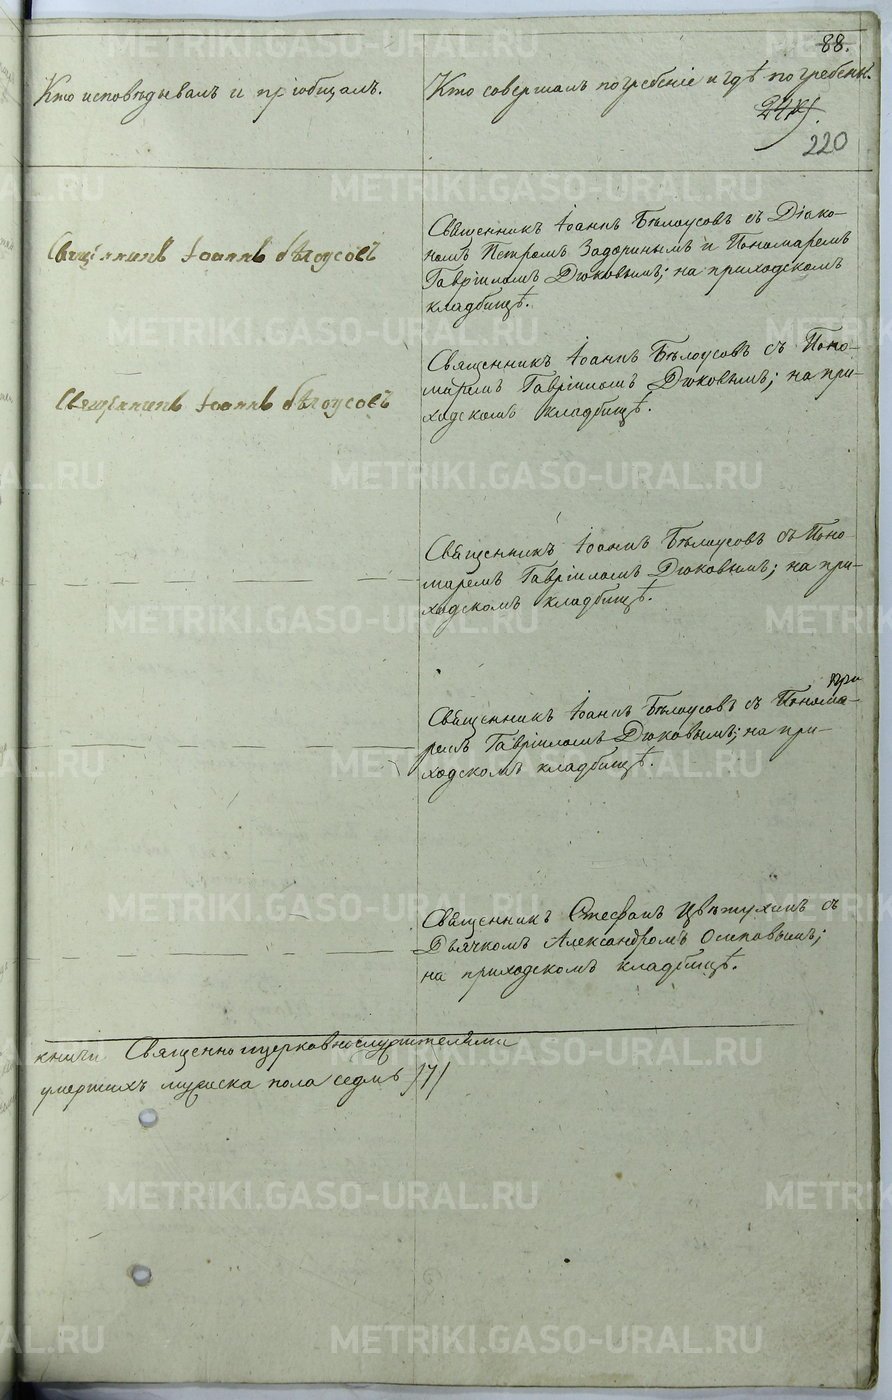 88.
Кто исповѣдывалъ и пріобщалъ.
Кто совершалъ погребеніе и гдѣ погребены.
220
Священникъ Іоаннъ Бѣлоусовъ
Священникъ Іоаннъ Бѣлоусовъ съ Діако-
номъ Петромъ Задоринымъ и Пономаремъ
Гавріиломъ Дюковымъ; на приходскомъ
кладбищѣ.
Священникъ Іоаннъ Бѣлоусовъ
Священникъ Іоаннъ Бѣлоусовъ съ Поно-
маремъ Гавріиломъ Дюковымъ; на при-
ходскомъ кладбищѣ.
Священникъ Іоаннъ Бѣлоусовъ съ Поно-
маремъ Гавріиломъ Дюковымъ; на при-
ходскомъ кладбищѣ.
при
Священникъ Іоаннъ Бѣлоусовъ съ Понома-
ремъ Гавріиломъ Дюковымъ; на при-
ходскомъ кладбищѣ.
Священникъ Стефанъ Цвѣтухинъ съ
Дьячкомъ Александромъ Осиповымъ;
на приходскомъ кладбищѣ.
книги Священноицерковнослужителями
умершихъ мужеска пола седмь /7/
METRIKI.GASO-URAL.RU